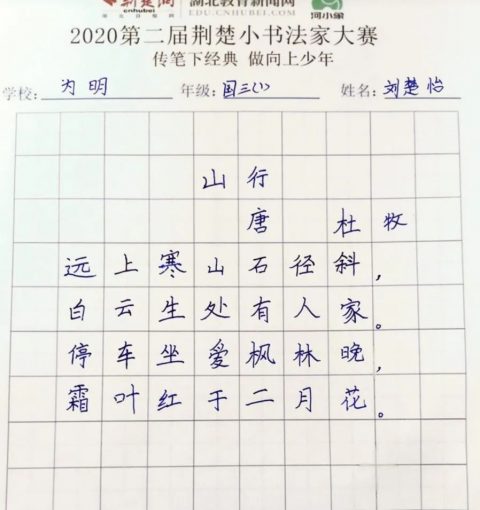 荆楚网 湖北教育新闻网 河小象
www.cnhubei.com EDU.CNHUBEI.COM
2020第二届荆楚小书法家大赛
传笔下经典 做向上少年
学校: 为明 年级: 国三(1) 姓名: 刘楚怡
山行
唐 杜牧
远上寒山石径斜,
白云生处有人家。
停车坐爱枫林晚,
霜叶红于二月花。